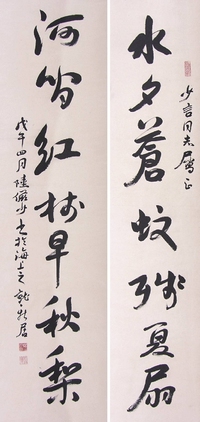 水夕蒼蚊殘夏扇
少言同志屬正
河間紅樹早秋梨
戊午四月陸儼少書於海上之就新居